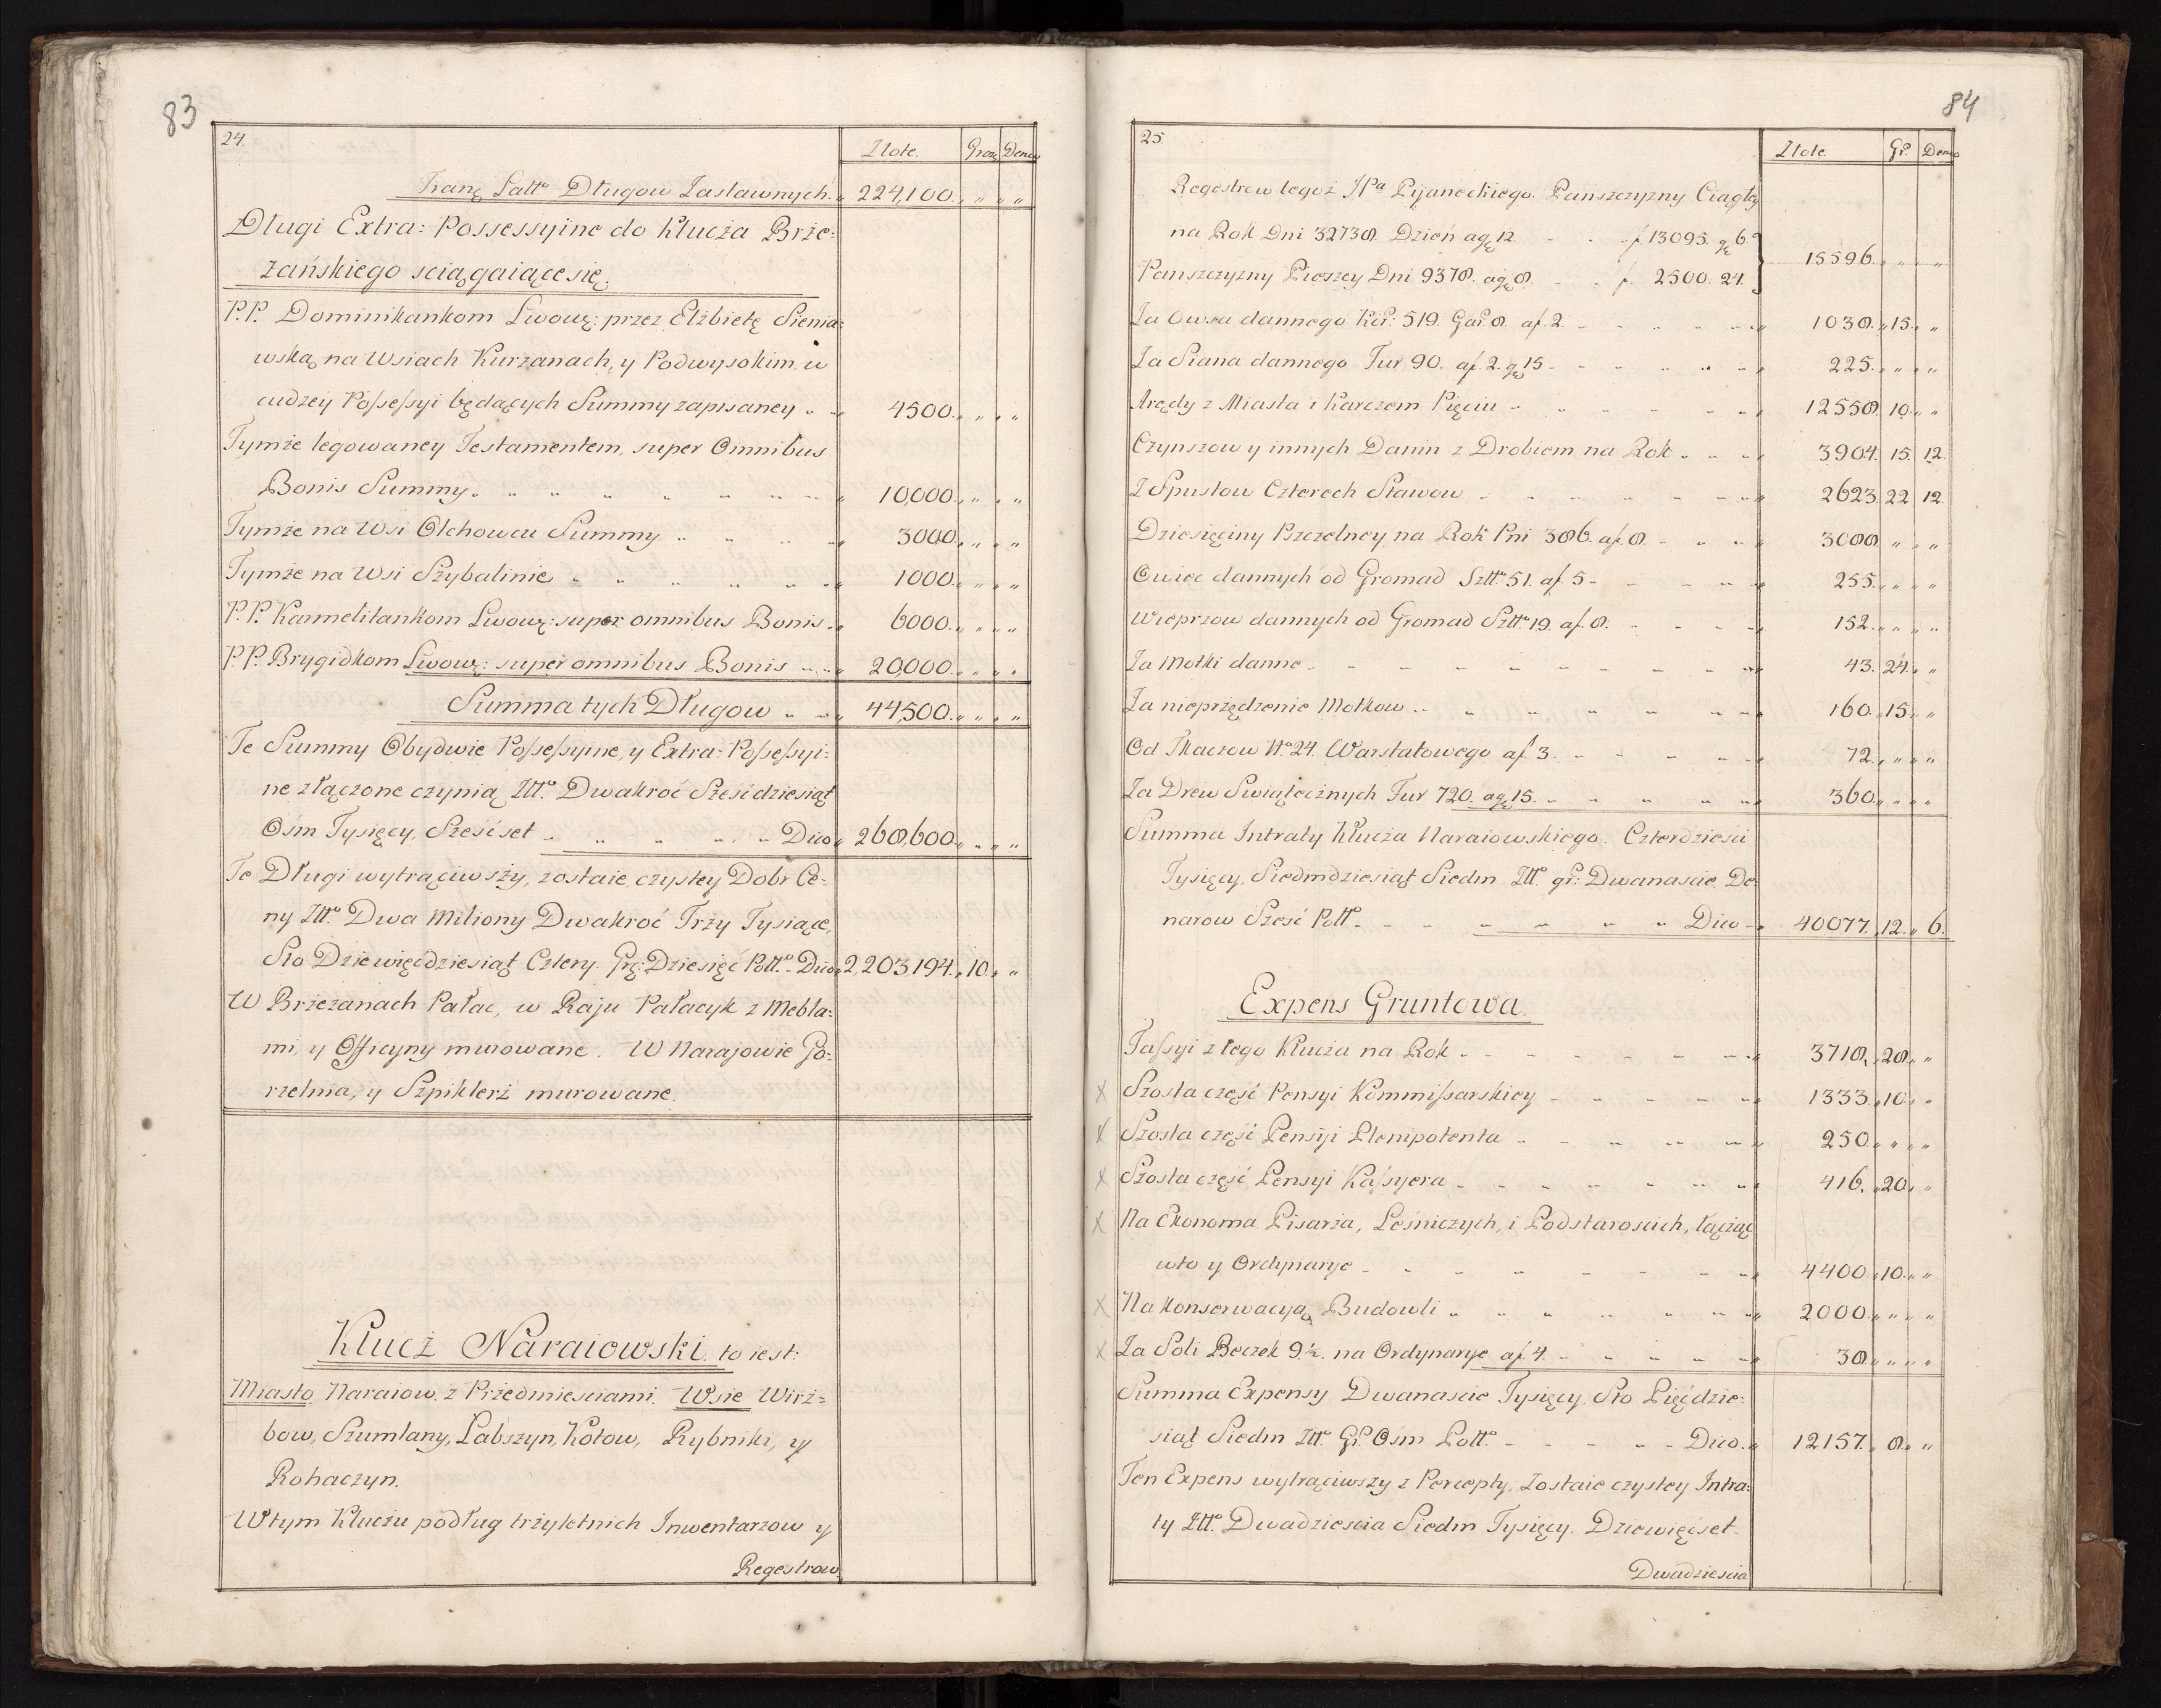 83
24.
Złote. Grosz Denar
Tranz Latt. Długow Zastawnych. 224,100. „ „
Długi Extra: Possessyine do Klucza Brże:
żańskiego sciągaiące się.
P.P. Dominikankom Lwow: przez Elżbietę Sienia:
wską na Wsiach Kurzanach, y Podwysokim, w
cudzey Possessyi będących Summy zapisaney „ 4500. „ „
Tymże legowaney Testamentem, super Omnibus
Bonis Summy „ „ „ 10,000. „ „
Tymże na Wsi Olchowcu Summy „ „ 3000. „ „
Tymże na Wsi Szybalinie „ „ „ 1000. „ „
P.P. Karmelitankom Lwow: super omnibus Bonis „ 6000. „ „
P.P. Brygidkom Lwow: super omnibus Bonis „ 20,000. „ „
Summa tych Długow „ „ 44,500. „ „
Te Summy Obydwie Possessyine, y Extra: Possessyi:
ne złączone czynią Złł. Dwakroć Sześćdziesiąt
Ośm Tysięcy, Sześćset „ „ „ Dico 268,600. „ „
Te Długi wytrąciwszy, zostaie, czystey Dobr Ce:
ny Złł. Dwa Miliony Dwakroć Trzy Tysiące,
Sto Dziewięćdziesiąt Cztery Gr: Dziesięć Poll. Dico 2,203,194. „ 10. „
W Brzeżanach Pałac, w Raju Pałacyk z Mebla:
mi, y Officyny murowane. W Narajowie Go:
rzelnia, y Szpiklerż murowane.
Klucż Naraiowski. to iest:
Miasto Naraiow. z Przedmiesciami. Wsie Wirż=
bow, Szumlany, Labszyn, Kotow, Rybniki, y
Rohaczyn.
W tym Kluczu podług trzyletnich Inwentarzow y
Regestrow
84
25.
Złote. Gr. Denar
Regestrow tegoż JPa Pijaneckiego. Panszczyzny Ciągłey
na Rok Dni 32738. Dzień a g 12. „ f 13095. g 6.
15596. „ „
Panszczyzny Pieszey Dni 9378. a g 8. „ f. 2500. 24.
Za Owsa dannego Kor: 519. Gar. 8. a f. 2. „ „ 1038. „ 15. „
Za Siana dannego Fur 90. a f. 2. g 15 „ „ 225. „ „
Arędy z Miasta i Karczem Pięciu „ „ 12558. 10. „
Czynszow y innych Danin z Drobiem na Rok „ „ 3904. 15. 12.
Z Spustow Czterech Stawow „ „ 2623. 22 12.
Dziesięciny Pszczelney na Rok Pni 386. a f. 8. „ „ 3088 „ „
Owiec dannych od Gromad Sztt. 51. a f. 5 „ „ 255. „ „
Wieprzow dannych od Gromad Sztt. 19. a f. 8. „ „ 152. „ „
Za Motki danne „ „ 43. 24. „
Za nieprzędzenie Motkow „ „ 160. „ 15. „
Od Tkaczow No 24. Warstatowego a f. 3. „ „ 72. „ „
Za Drew Swiątecżnych Fur 720. a g 15. „ „ 360. „ „
Summa Intraty Klucża Naraiowskiego. Czterdzieści
Tysięcy, Siedmdziesiąt Siedm Złł. gr: Dwanascie De:
narow Szesć Poll. „ „ Dico 40077. „ 12. „ 6.
Expens Gruntowa.
Fassyi z tego Klucża na Rok „ „ 3718. „ 28. „
x Szosta część Pensyi Kommissarskiey „ „ 1333. „ 10. „
x Szosta część Pensyi Plenipotenta „ „ 250. „ „
x Szosta część Pensyi Kassyera „ „ 416. „ 20. „
x Na Ekonoma Pisarza, Leśniczych, i Podstaroscich, łącżąc
w to y Ordynarye „ „ 4400. „ 10. „
x Na Konserwacyą Budowli „ „ 2000. „ „
x Za Soli Beczek 9.½. na Ordynarye a f. 4. „ „ 38. „ „
Summa Expensy Dwanascie Tysięcy. Sto Pięćdzie:
siąt Siedm Złł. Gr. Ośm Poll. „ „ Dico. 12157. „ 8. „
Ten Expens wytrąciwszy z Percepty, zostaie czystey Intra:
ty Złł. Dwadzieścia Siedm Tysięcy. Dziewięćset
Dwadziescia